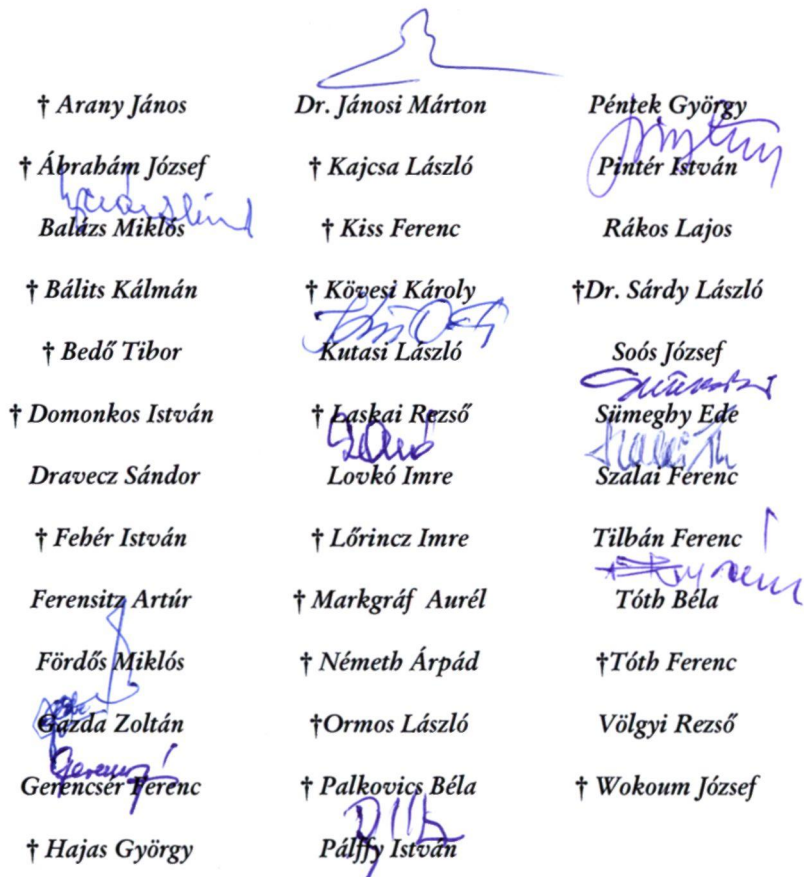 † Arany János
† Ábrahám József
Balázs Miklós
† Bálits Kálmán
† Bedő Tibor
† Domonkos István
Dravecz Sándor
† Fehér István
Ferensitz Artúr
Fördős Miklós
Gazda Zoltán
Gerencsér Ferenc
† Hajas György
Dr. Jánosi Márton
† Kajcsa László
† Kiss Ferenc
† Kövesi Károly
Kutasi László
† Laskai Rezső
Lovkó Imre
† Lőrincz Imre
† Markgráf Aurél
† Németh Árpád
†Ormos László
† Palkovics Béla
Pálffy István
Péntek György
Pintér István
Rákos Lajos
†Dr. Sárdy László
Soós József
Sümeghy Ede
Szalai Ferenc
Tilbán Ferenc
Tóth Béla
†Tóth Ferenc
Völgyi Rezső
† Wokoum József